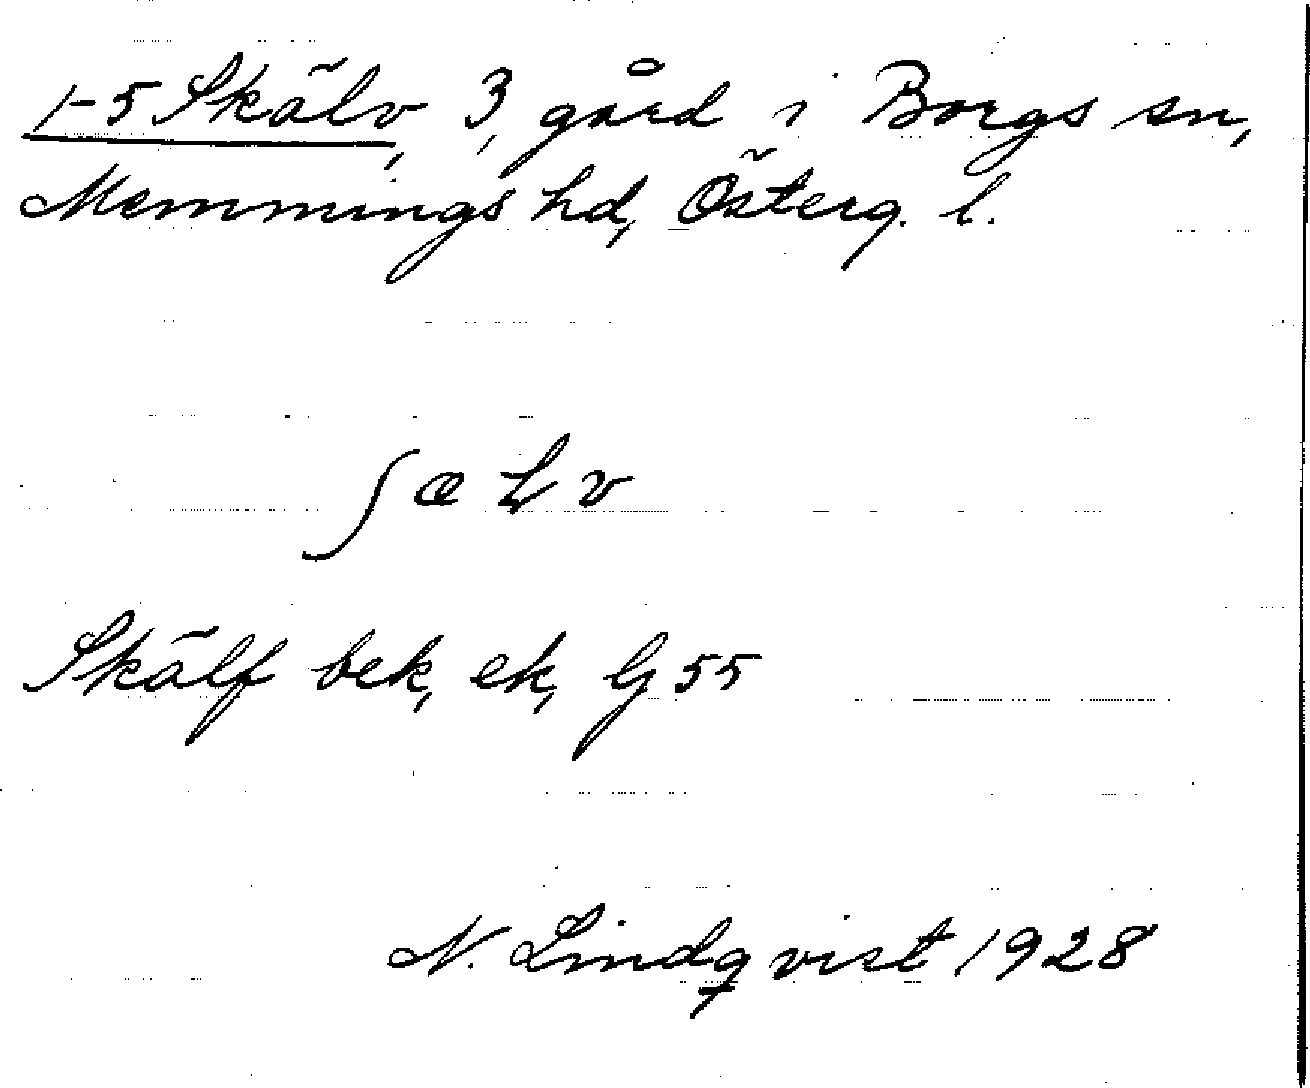 1-5 Skälv, 3, gård i Borgs sn,
Memmings hd, Österg. l.
ʃælv
Skälf bek, ek, Gj 55
N. Lindqvist 1928